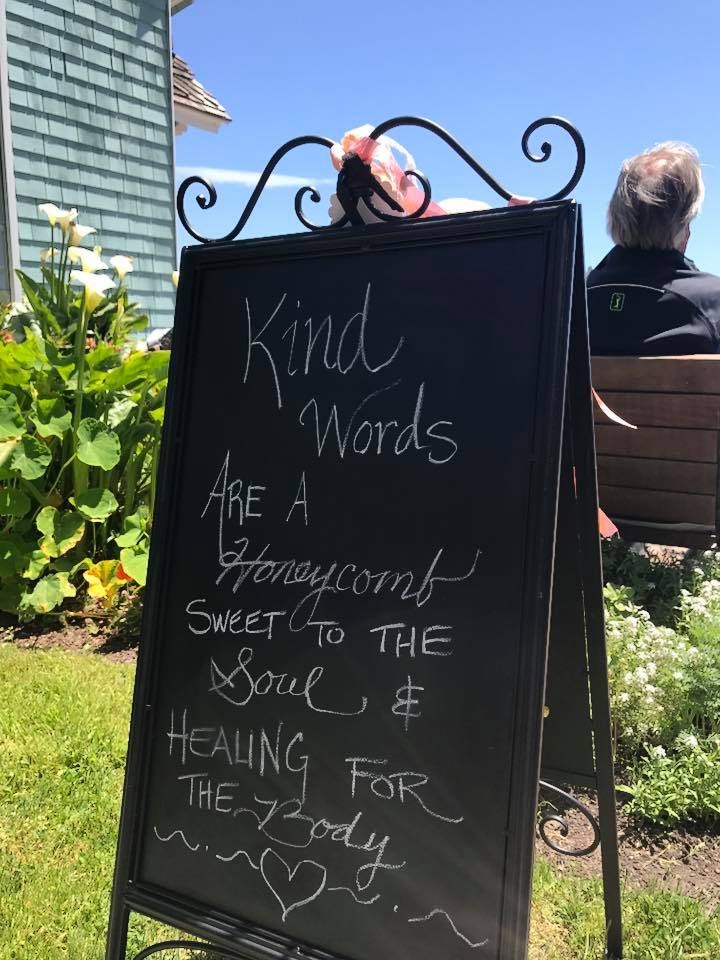 Kind
Words
ARE A
Honeycomb
SWEET TO THE
Soul &
HEALING FOR
THE Body